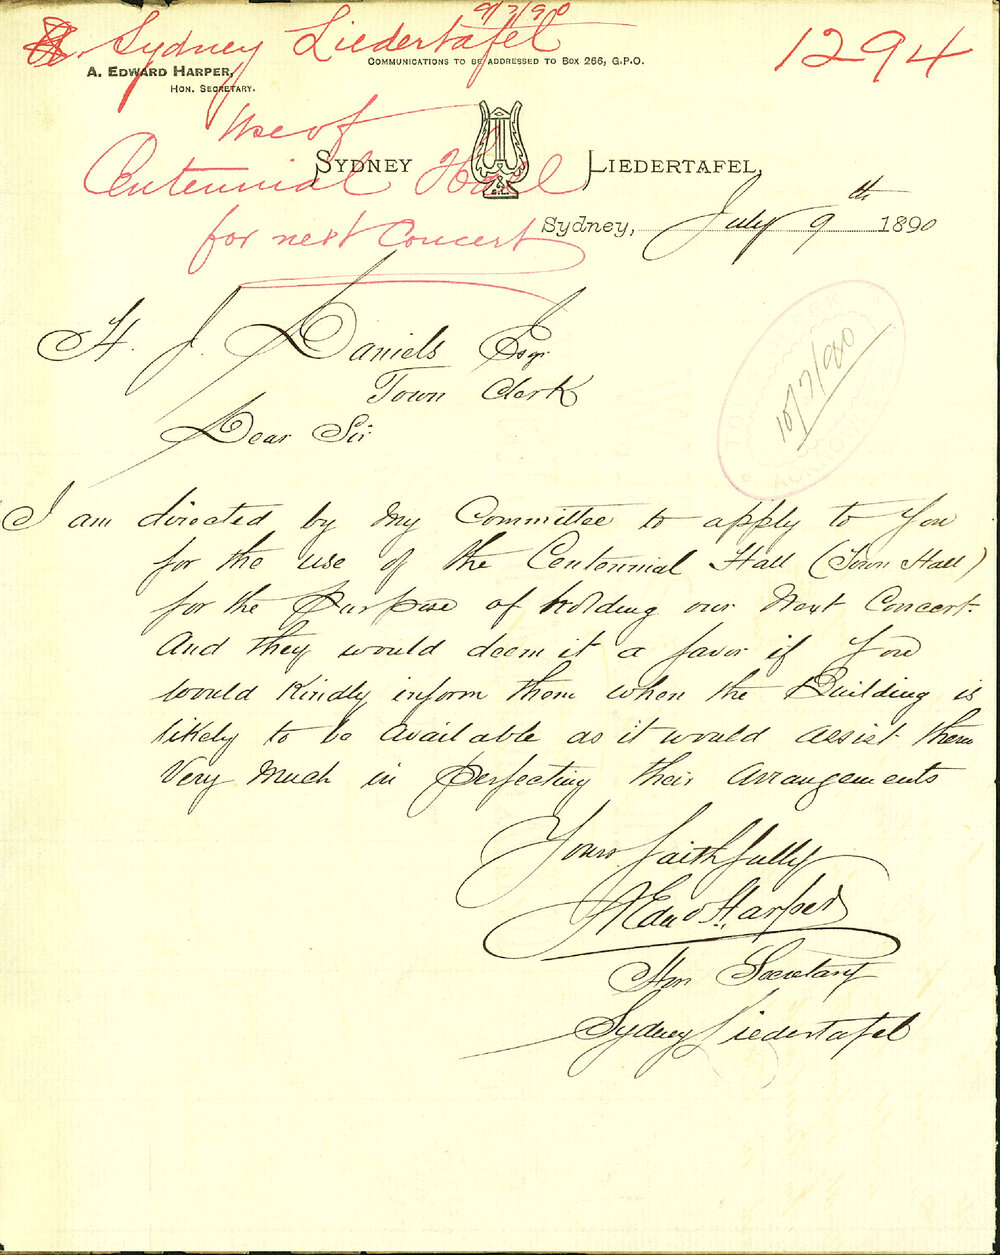 9/7/90
Sydney Liedertafel
1294
Communications to be addressed to Box 266, G.P.O.
A. Edward Harper,
Hon. Secretary.
Use of
Centennial Hall
for next Concert
Sydney Liedertafel,
S.L.
Sydney, July 9th 1890
H. J. Daniels Esqr
Town Clerk
10/7/90
Dear Sir
I am directed by My Committee to apply to You
for the use of the Centennial Hall (Town Hall)
for the Purpose of holding our Next Concert.
And they would deem it a favor if You
would Kindly inform them when the Building is
likely to be Available as it would assist them
Very Much in perfecting their Arrangements
Yours faithfully
A Edwd Harper
Hon Secretary
Sydney Liedertafel